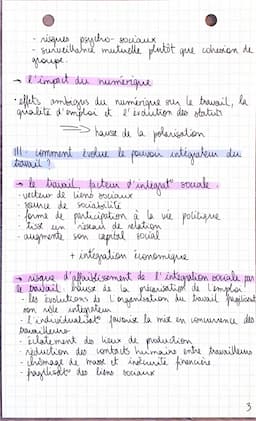 - risques psycho-sociaux
- surveillance mutuelle plutôt que cohésion de
groupe.
→ l'impact du numérique
• effets ambigus du numérique sur le travail, la
qualité d'emploi et l'évolution des statuts
⇒ hausse de la polarisation
III comment évolue le pouvoir intégrateur du
travail ?
→ le travail, facteur d'intégrat° sociale.
- vecteur de liens sociaux
- source de sociabilité
- forme de participation à la vie politique
- tisse un réseau de relation
- augmente son capital social
+ intégration économique
→ risque d'affaiblissement de l'intégration sociale par
le travail : hausse de la précarisation de l'emploi
- les évolutions de l'organisation du travail fragilisent
son rôle intégrateur
- l'individualisat° favorise la mise en concurrence des
travailleurs
- éclatement des lieux de production
- réduction des contacts humains entre travailleurs
- chômage de masse et insécurité financière
- fragilisat° des liens sociaux
3